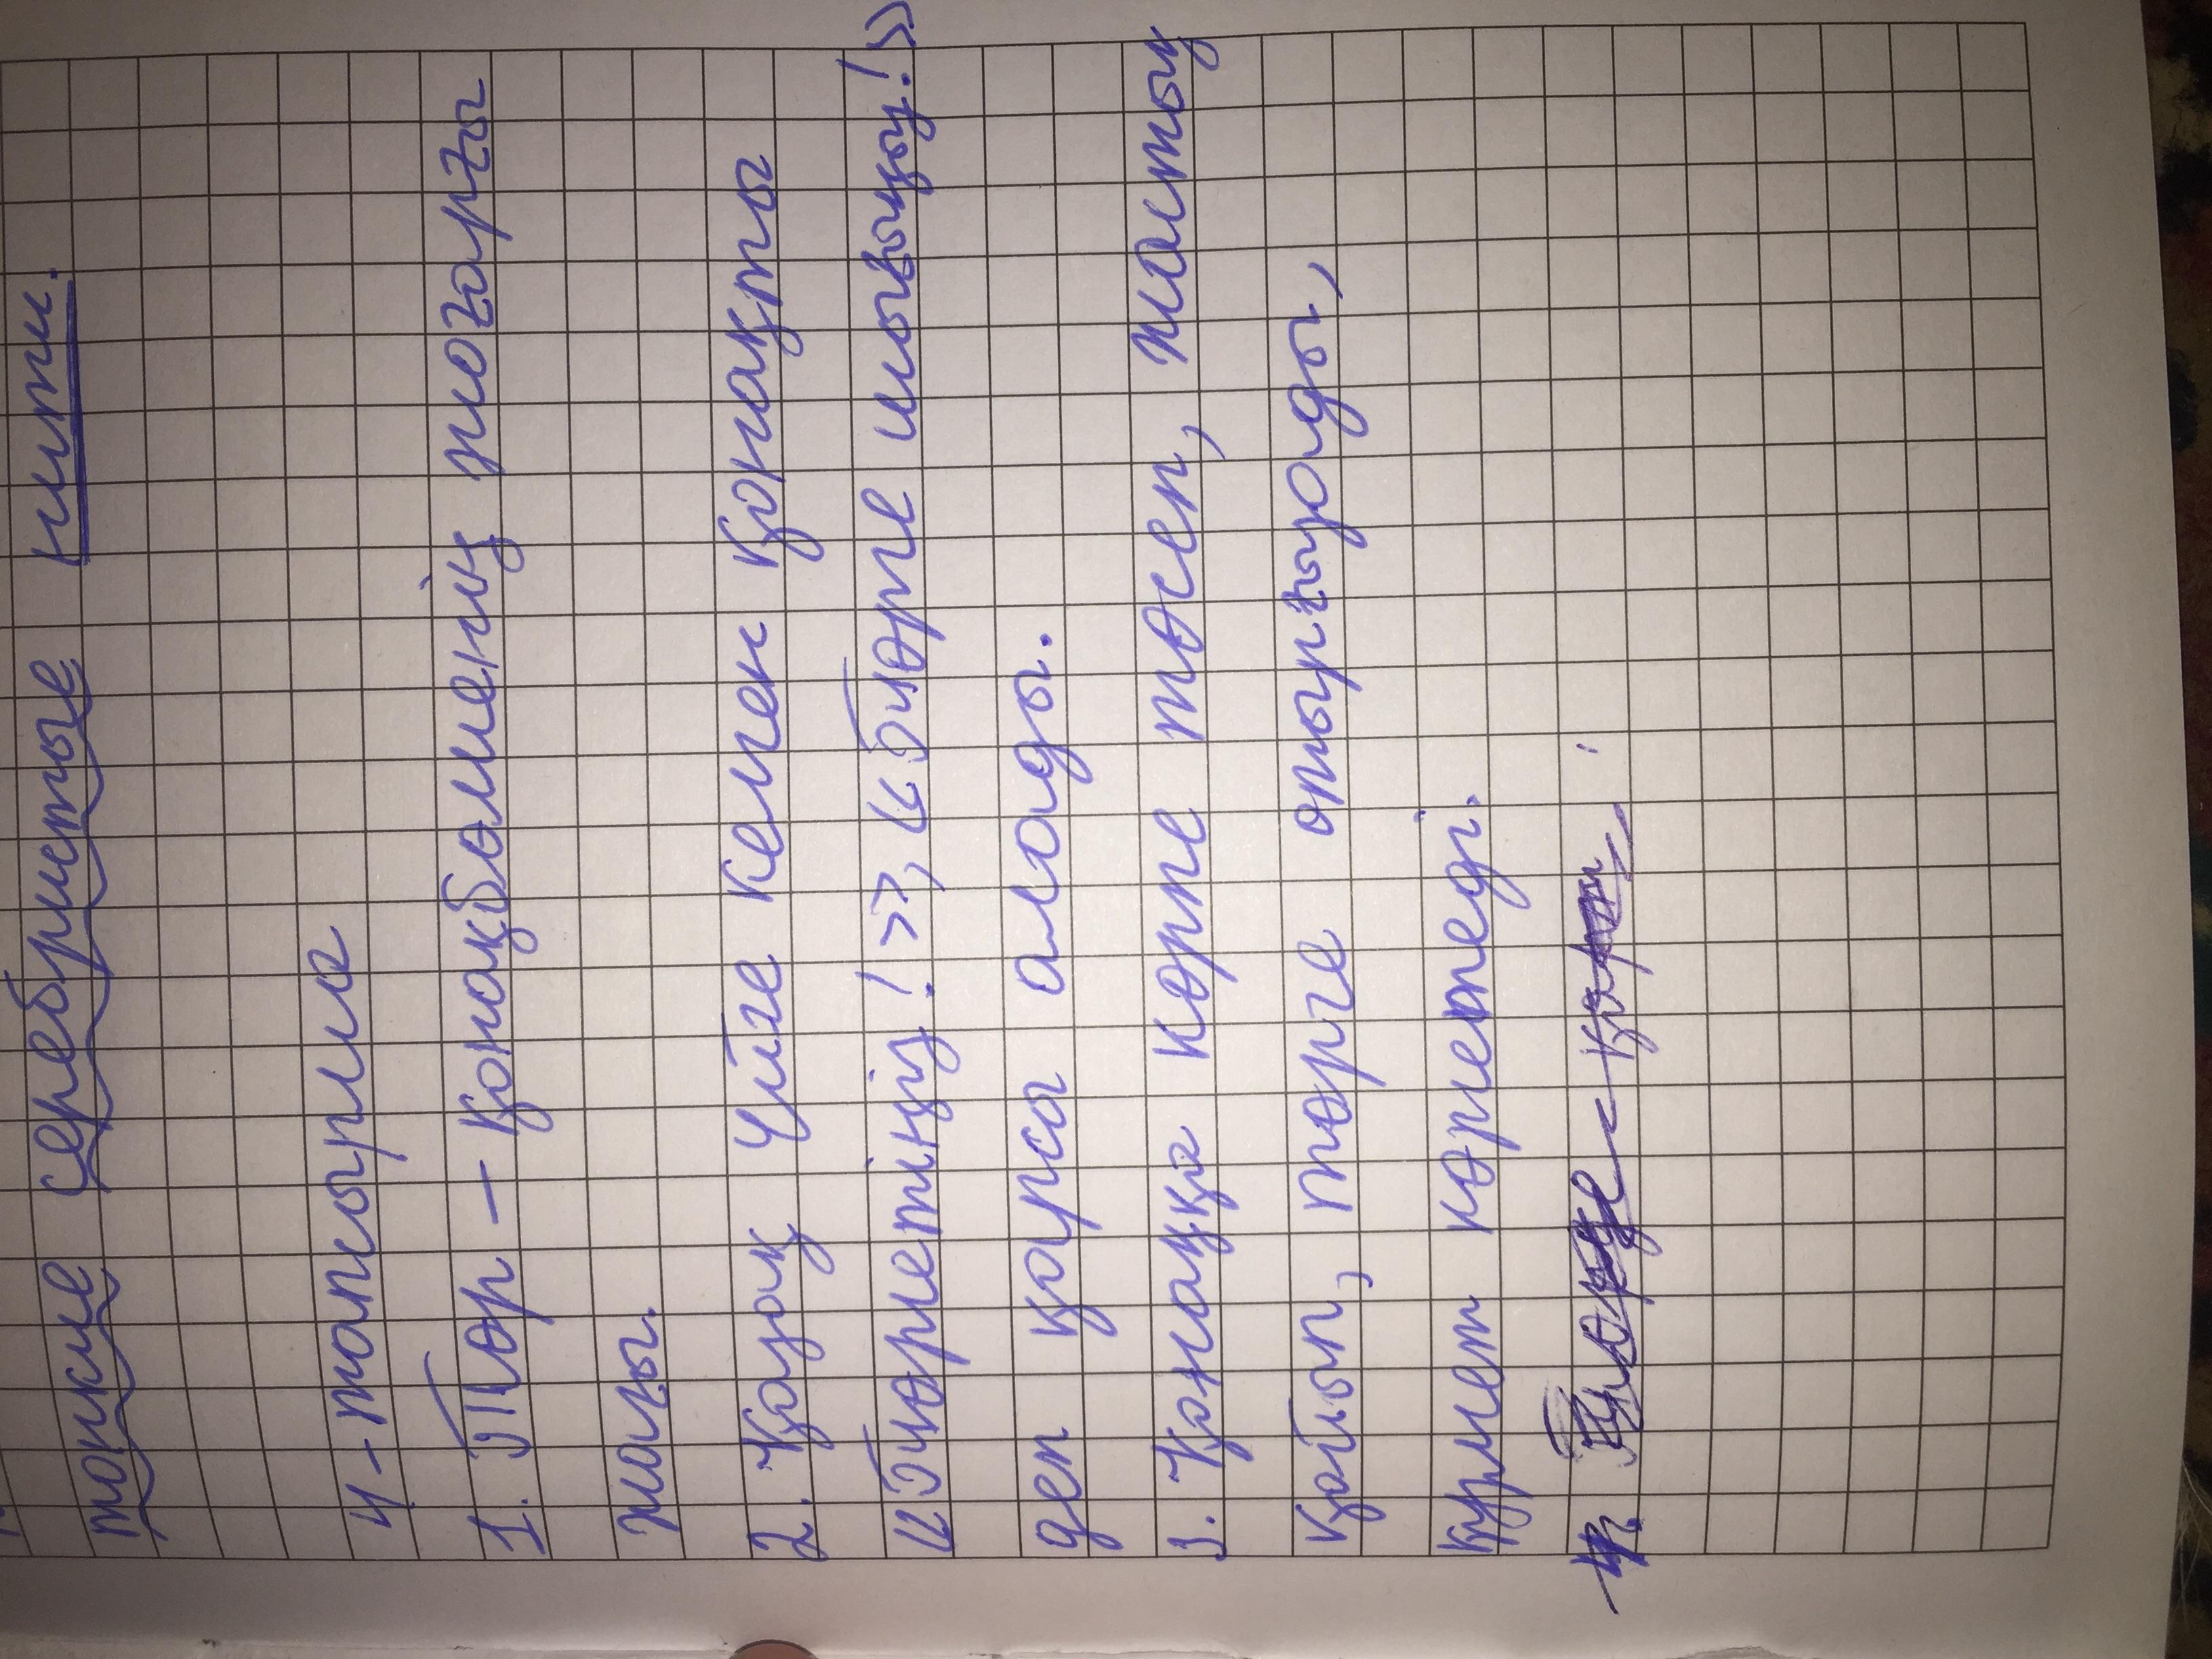 тонкие серебристые нити.
4-тапсырма
1. Төр – қонақбөлменің жоғарғы
жағы.
2. Қазақ үйге келген қонақты
«Төрлетіңіз!», «Төрге шығыңыз!»
деп қарсы алады.
3. Қонаққа көрпе төсеп, жастық
қойып, төрге отырғызады,
құрмет көрсетеді.